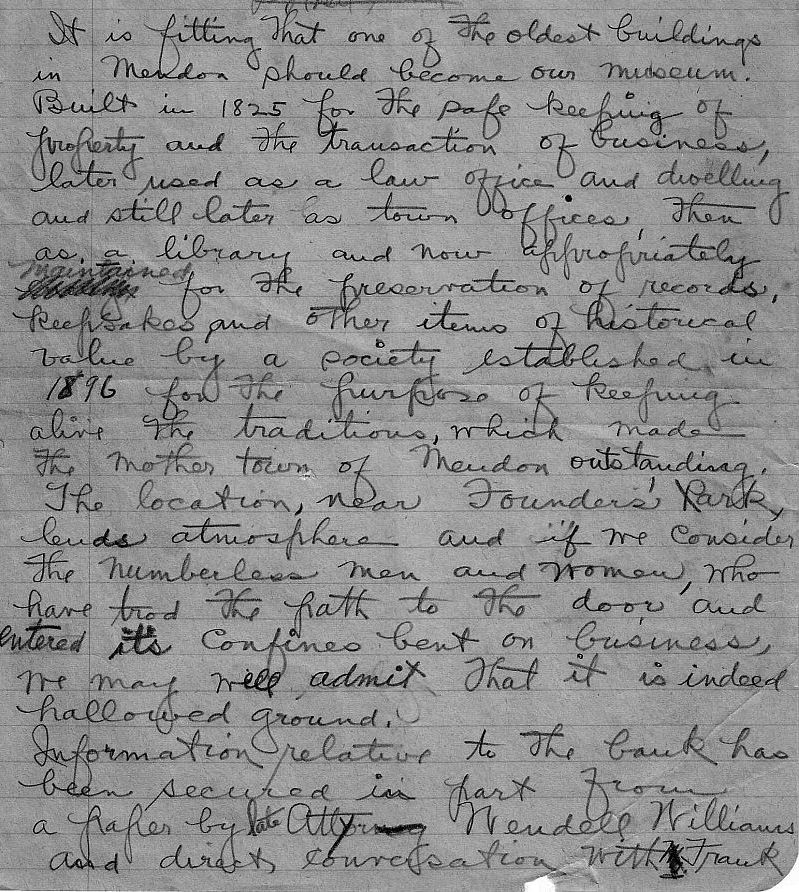 It is fitting that one of the oldest buildings
in Mendon should become our museum.
Built in 1825 for the safe keeping of
property and the transaction of business,
later used as a law office and dwelling
and still later as town offices, then
as a library and now appropriately
maintained
for the preservation of records,
keepsakes and other items of historical
value by a society established in
1896 for the purpose of keeping
alive the traditions, which made
the mother town of Mendon outstanding.
The location, near Founders' Park,
lends atmosphere and if we consider
the numberless men and women, who
have trod the path to the door and
entered its confines bent on business,
we may well admit that it is indeed
hallowed ground.
Information relative to the bank has
been secured in part from
a paper by late Atty Wendell Williams
and direct conversation with Frank